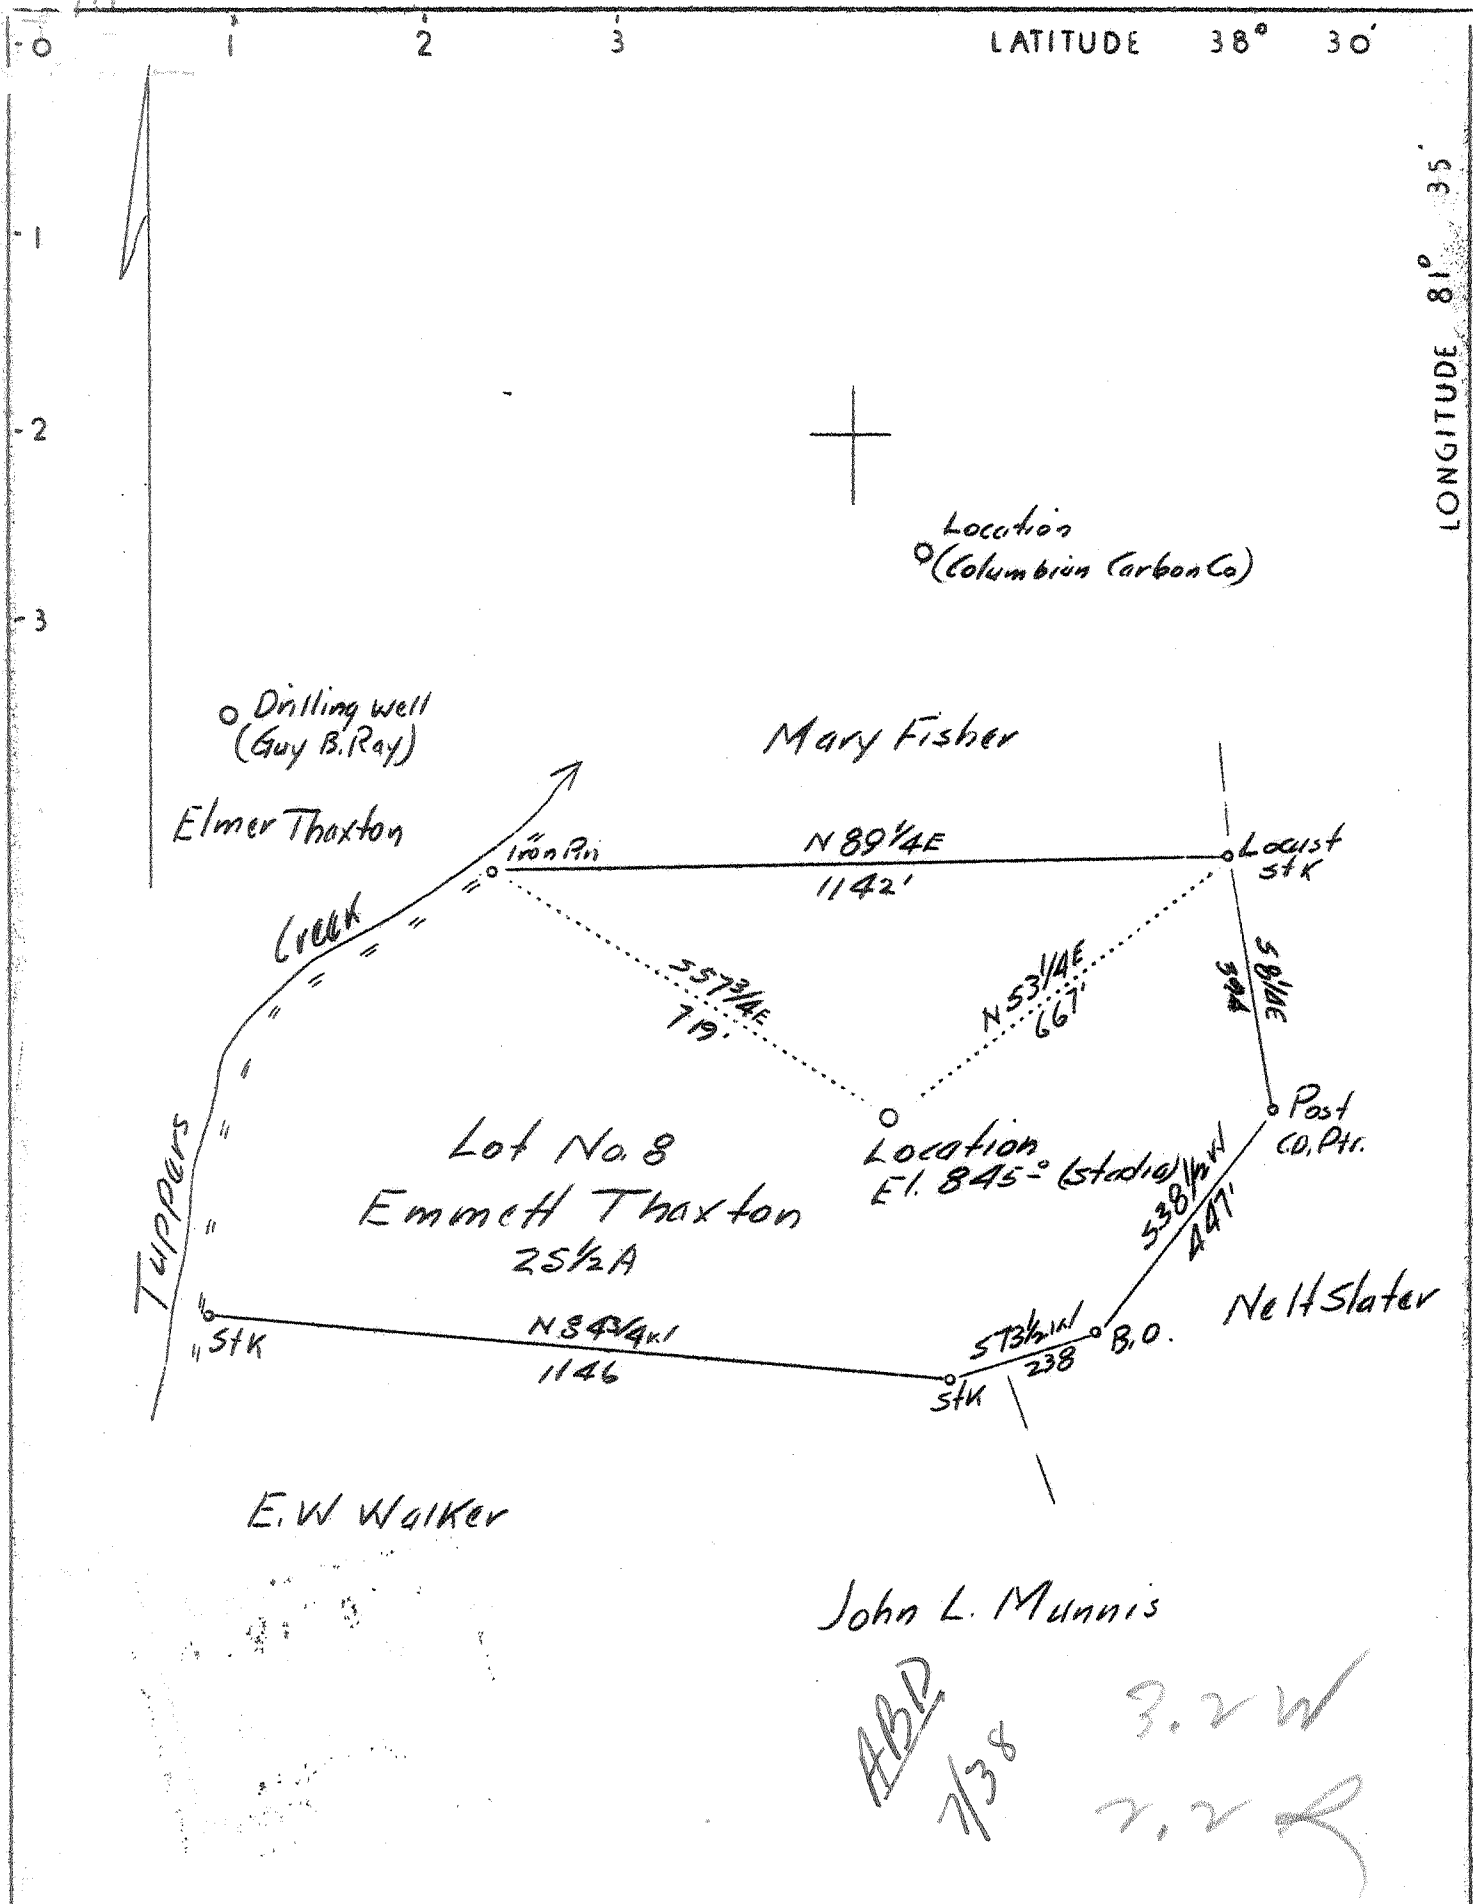 0 1 2 3 LATITUDE 38° 30'
LONGITUDE 81° 35'
1
2
3
Location
(Columbian Carbon Co)
Drilling well
(Guy B. Ray)
Mary Fisher
Elmer Thaxton
Iron Pin
N 89 1/4 E
1142'
Locust
Stk
Creek
S 57 3/4 E
719'
N 53 1/4 E
667'
S 8 1/4 E
394
Post
C.O. Ptr.
Tuppars
Lot No. 8
Emmett Thaxton
25 1/2 A
Location
El. 845.0 (stadia)
S 38 1/2 W
447'
Nelt Slater
Stk
N 84 3/4 W
1146
S 73 1/2 W
238
B.O.
Stk
E. W Walker
John L. Munnis
ABD
7/38
3.2 W
2.2